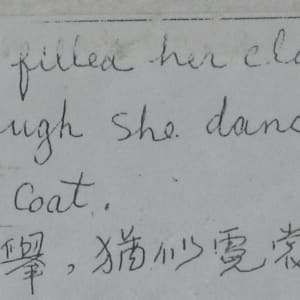 filled her clo
ugh She danc
Coat.
舉，猶似霓裳